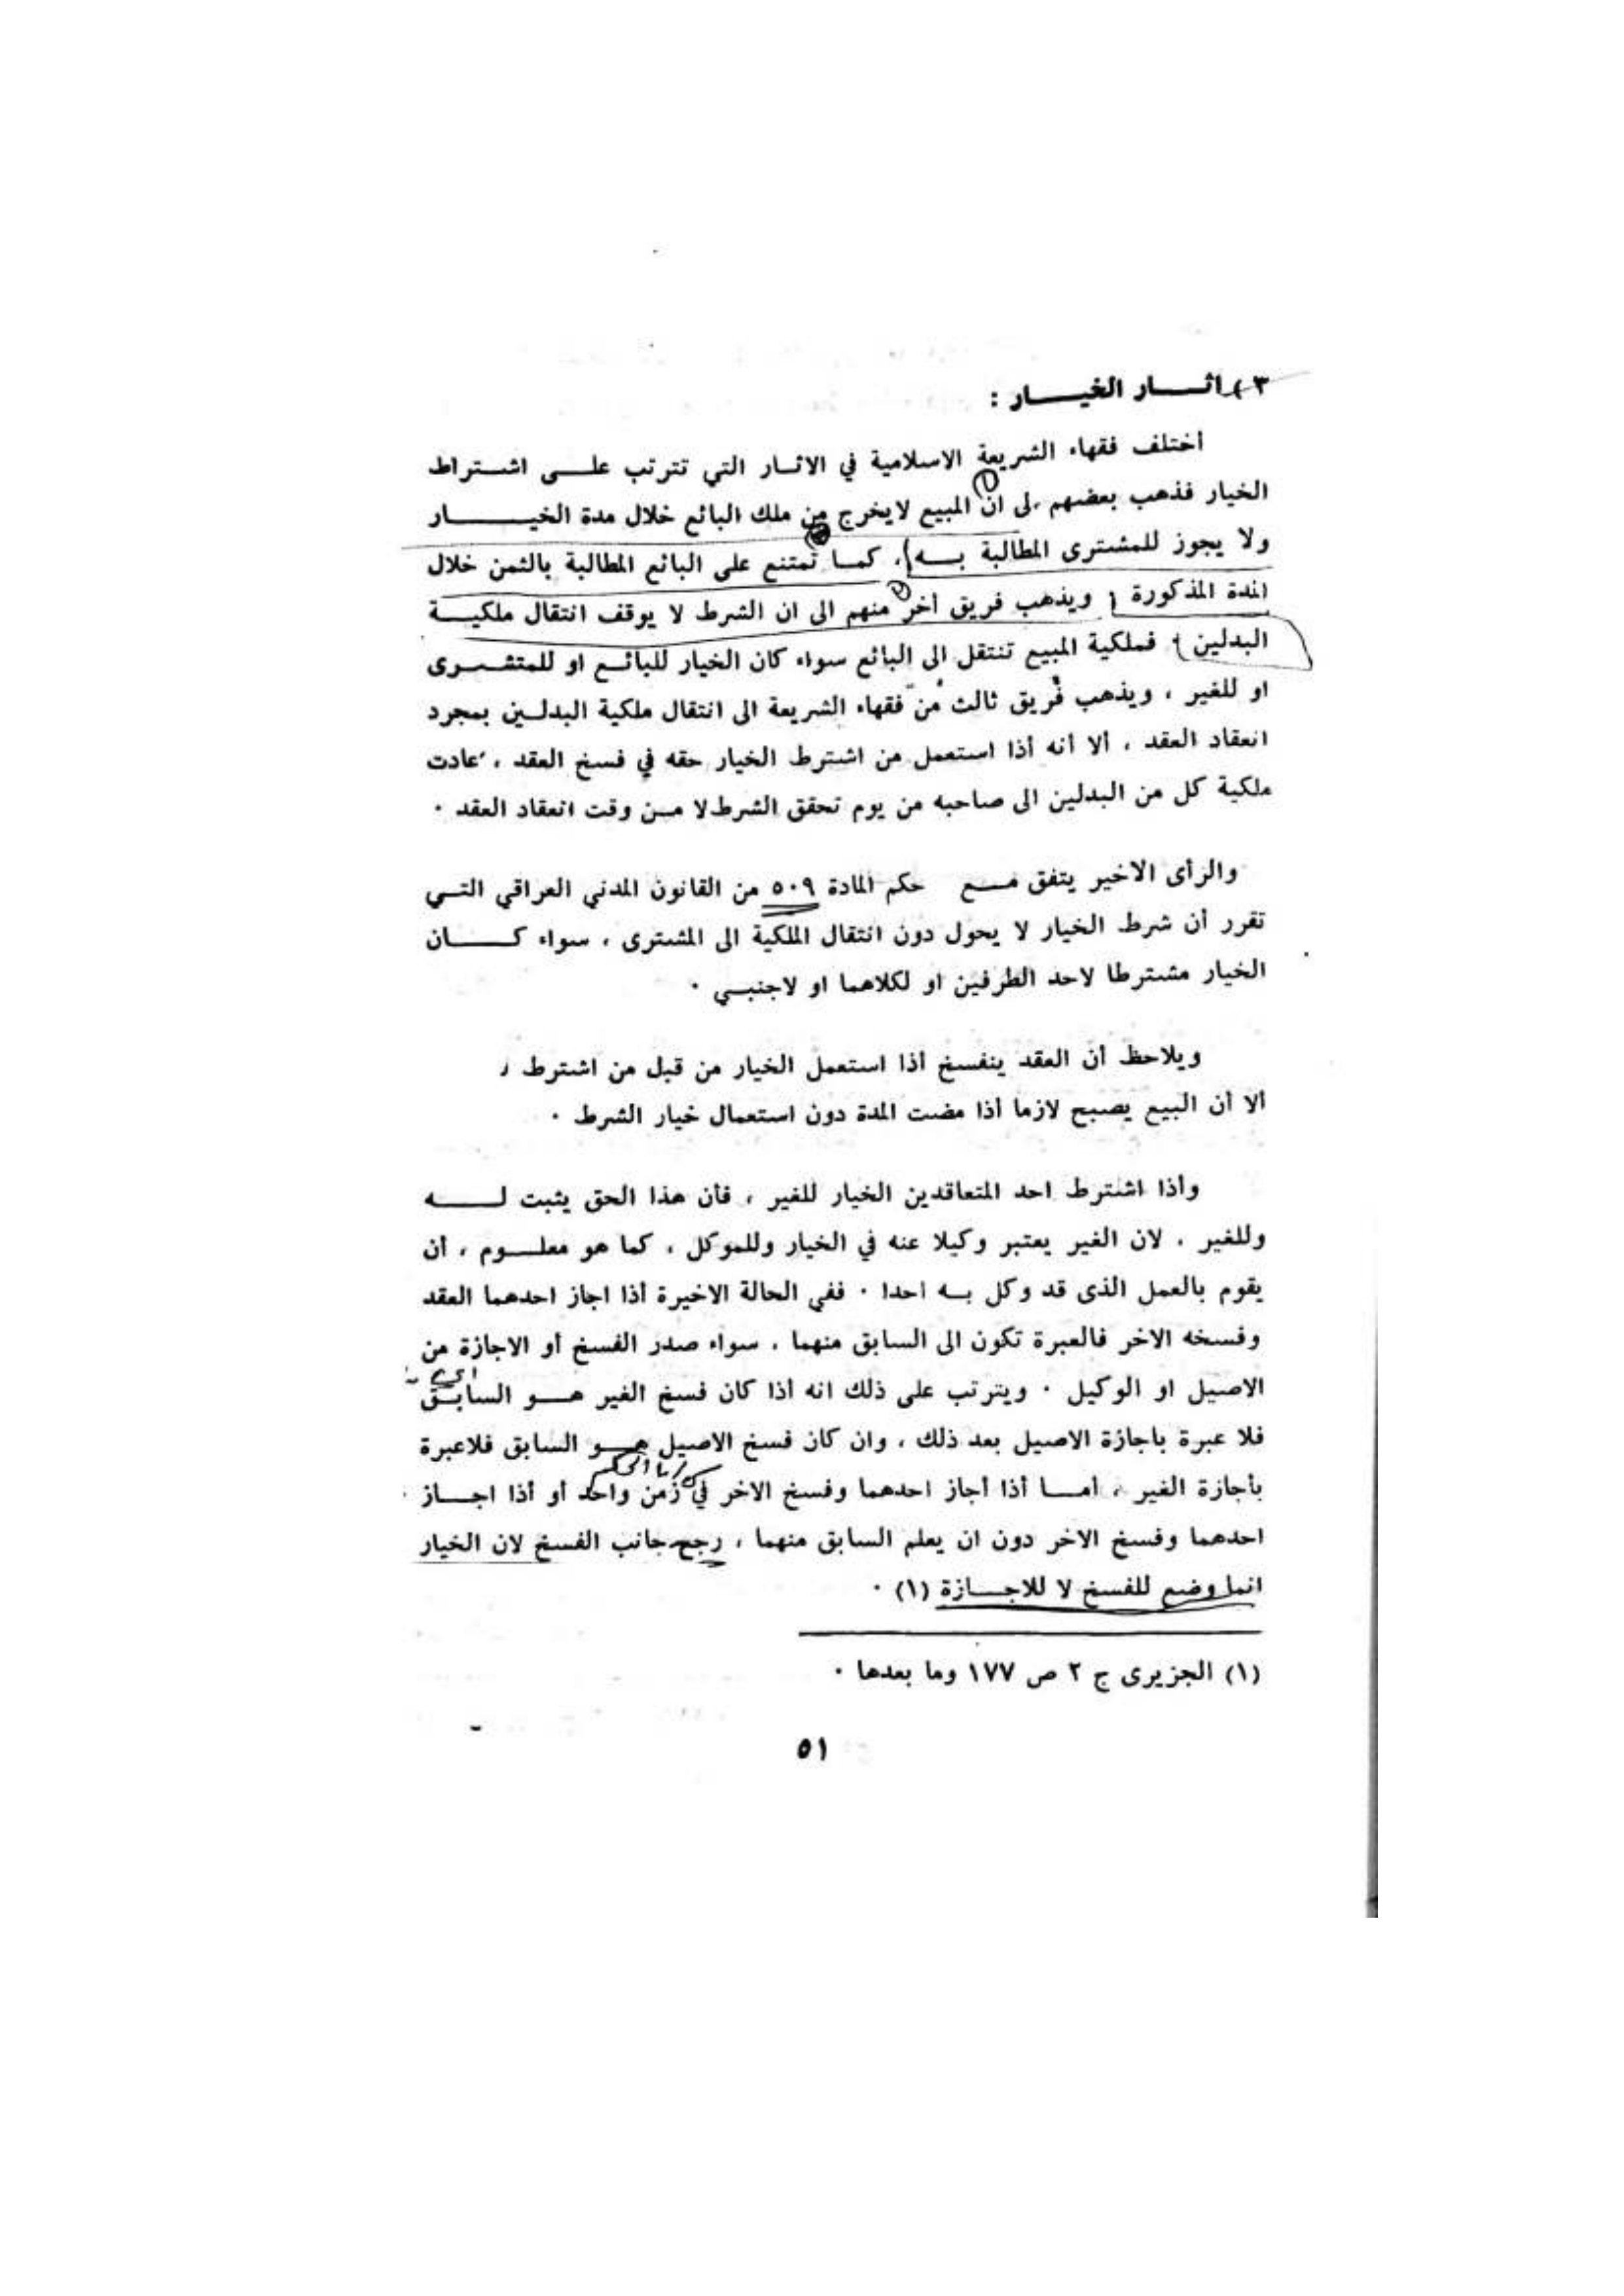 ٣) اثـــار الخيـــار :
أختلف فقهاء الشريعة الاسلامية في الاثـار التي تترتب علـى اشـتراط
الخيار فذهب بعضهم لى ان المبيع لايخرج من ملك البائع خلال مدة الخيـــار
ولا يجوز للمشترى المطالبة بـه ، كمـا تمتنع على البائع المطالبة بالثمن خلال
المدة المذكورة ، ويذهب فريق أخر منهم الى ان الشرط لا يوقف انتقال ملكيـة
البدلين ، فملكية المبيع تنتقل الى البائع سواء كان الخيار للبائـع او للمتشـرى
او للغير ، ويذهب فريق ثالث من فقهاء الشريعة الى انتقال ملكية البدلـين بمجرد
انعقاد العقد ، ألا أنه أذا استعمل من اشترط الخيار حقه في فسخ العقد ، عادت
ملكية كل من البدلين الى صاحبه من يوم تحقق الشرط لا مـن وقت انعقاد العقد ٠
والرأى الاخير يتفق مـع حكم المادة ٥٠٩ من القانون المدني العراقي التـي
تقرر أن شرط الخيار لا يحول دون انتقال الملكية الى المشترى ، سواء كـــان
الخيار مشترطا لاحد الطرفين او لكلاهما او لاجنبـي ٠
ويلاحظ أن العقد ينفسخ أذا استعمل الخيار من قبل من اشترط
ألا أن البيع يصبح لازما أذا مضت المدة دون استعمال خيار الشرط ٠
وأذا اشترط احد المتعاقدين الخيار للغير ، فأن هذا الحق يثبت لـــه
وللغير ، لان الغير يعتبر وكيلا عنه في الخيار وللموكل ، كما هو معلـوم ، أن
يقوم بالعمل الذى قد وكل بـه احدا ٠ ففي الحالة الاخيرة أذا اجاز احدهما العقد
وفسخه الاخر فالعبرة تكون الى السابق منهما ، سواء صدر الفسخ أو الاجازة من
الاصيل او الوكيل ٠ ويترتب على ذلك انه أذا كان فسخ الغير هـو السابـق
فلا عبرة باجازة الاصيل بعد ذلك ، وان كان فسخ الاصيل هـو السابق فلاعبرة
بأجازة الغير ، أمـا أذا أجاز احدهما وفسخ الاخر في زمن واحد أو أذا اجـاز
احدهما وفسخ الاخر دون ان يعلم السابق منهما ، رجح جانب الفسخ لان الخيار
انما وضع للفسخ لا للاجـازة (١) ٠
(١) الجزيرى ج ٢ ص ١٧٧ وما بعدها ٠
٥١